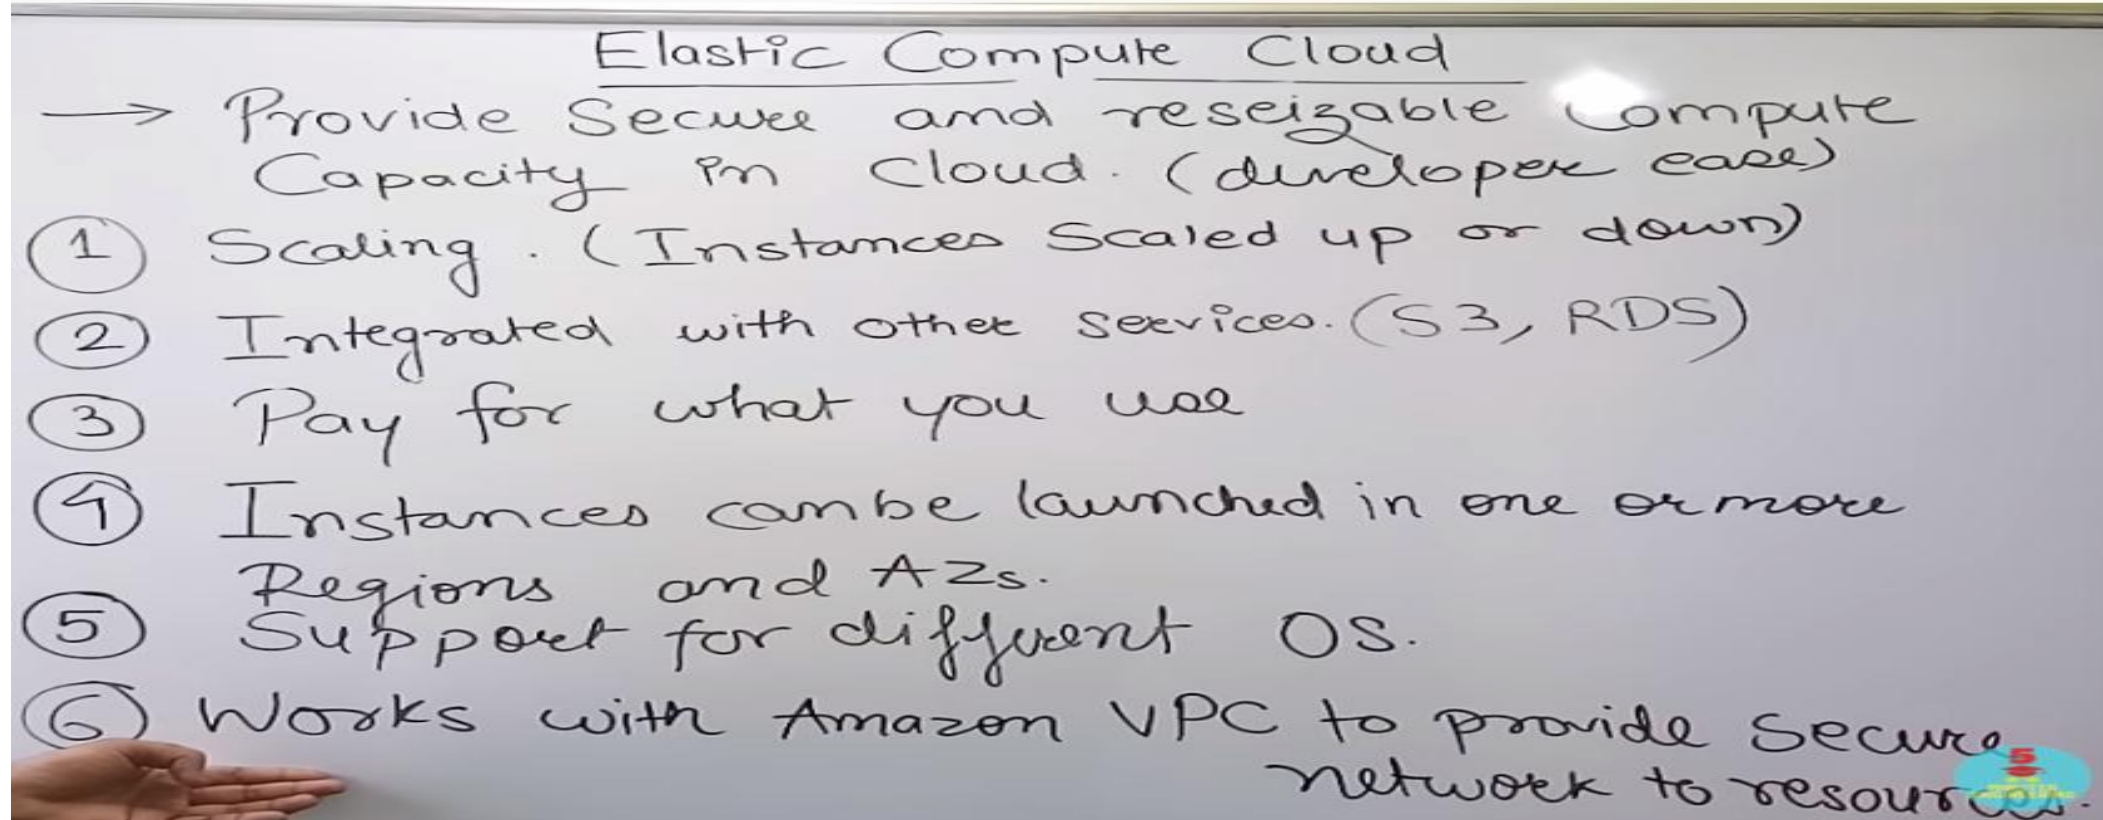 Elastic Compute Cloud
→ Provide Secure and reseizable Compute
Capacity in Cloud. (developer ease)
1 Scaling. (Instances Scaled up or down)
2 Integrated with other services. (S3, RDS)
3 Pay for what you use
4 Instances can be launched in one or more
Regions and AZs.
5 Support for different OS.
6 Works with Amazon VPC to provide secure
network to resources.
5